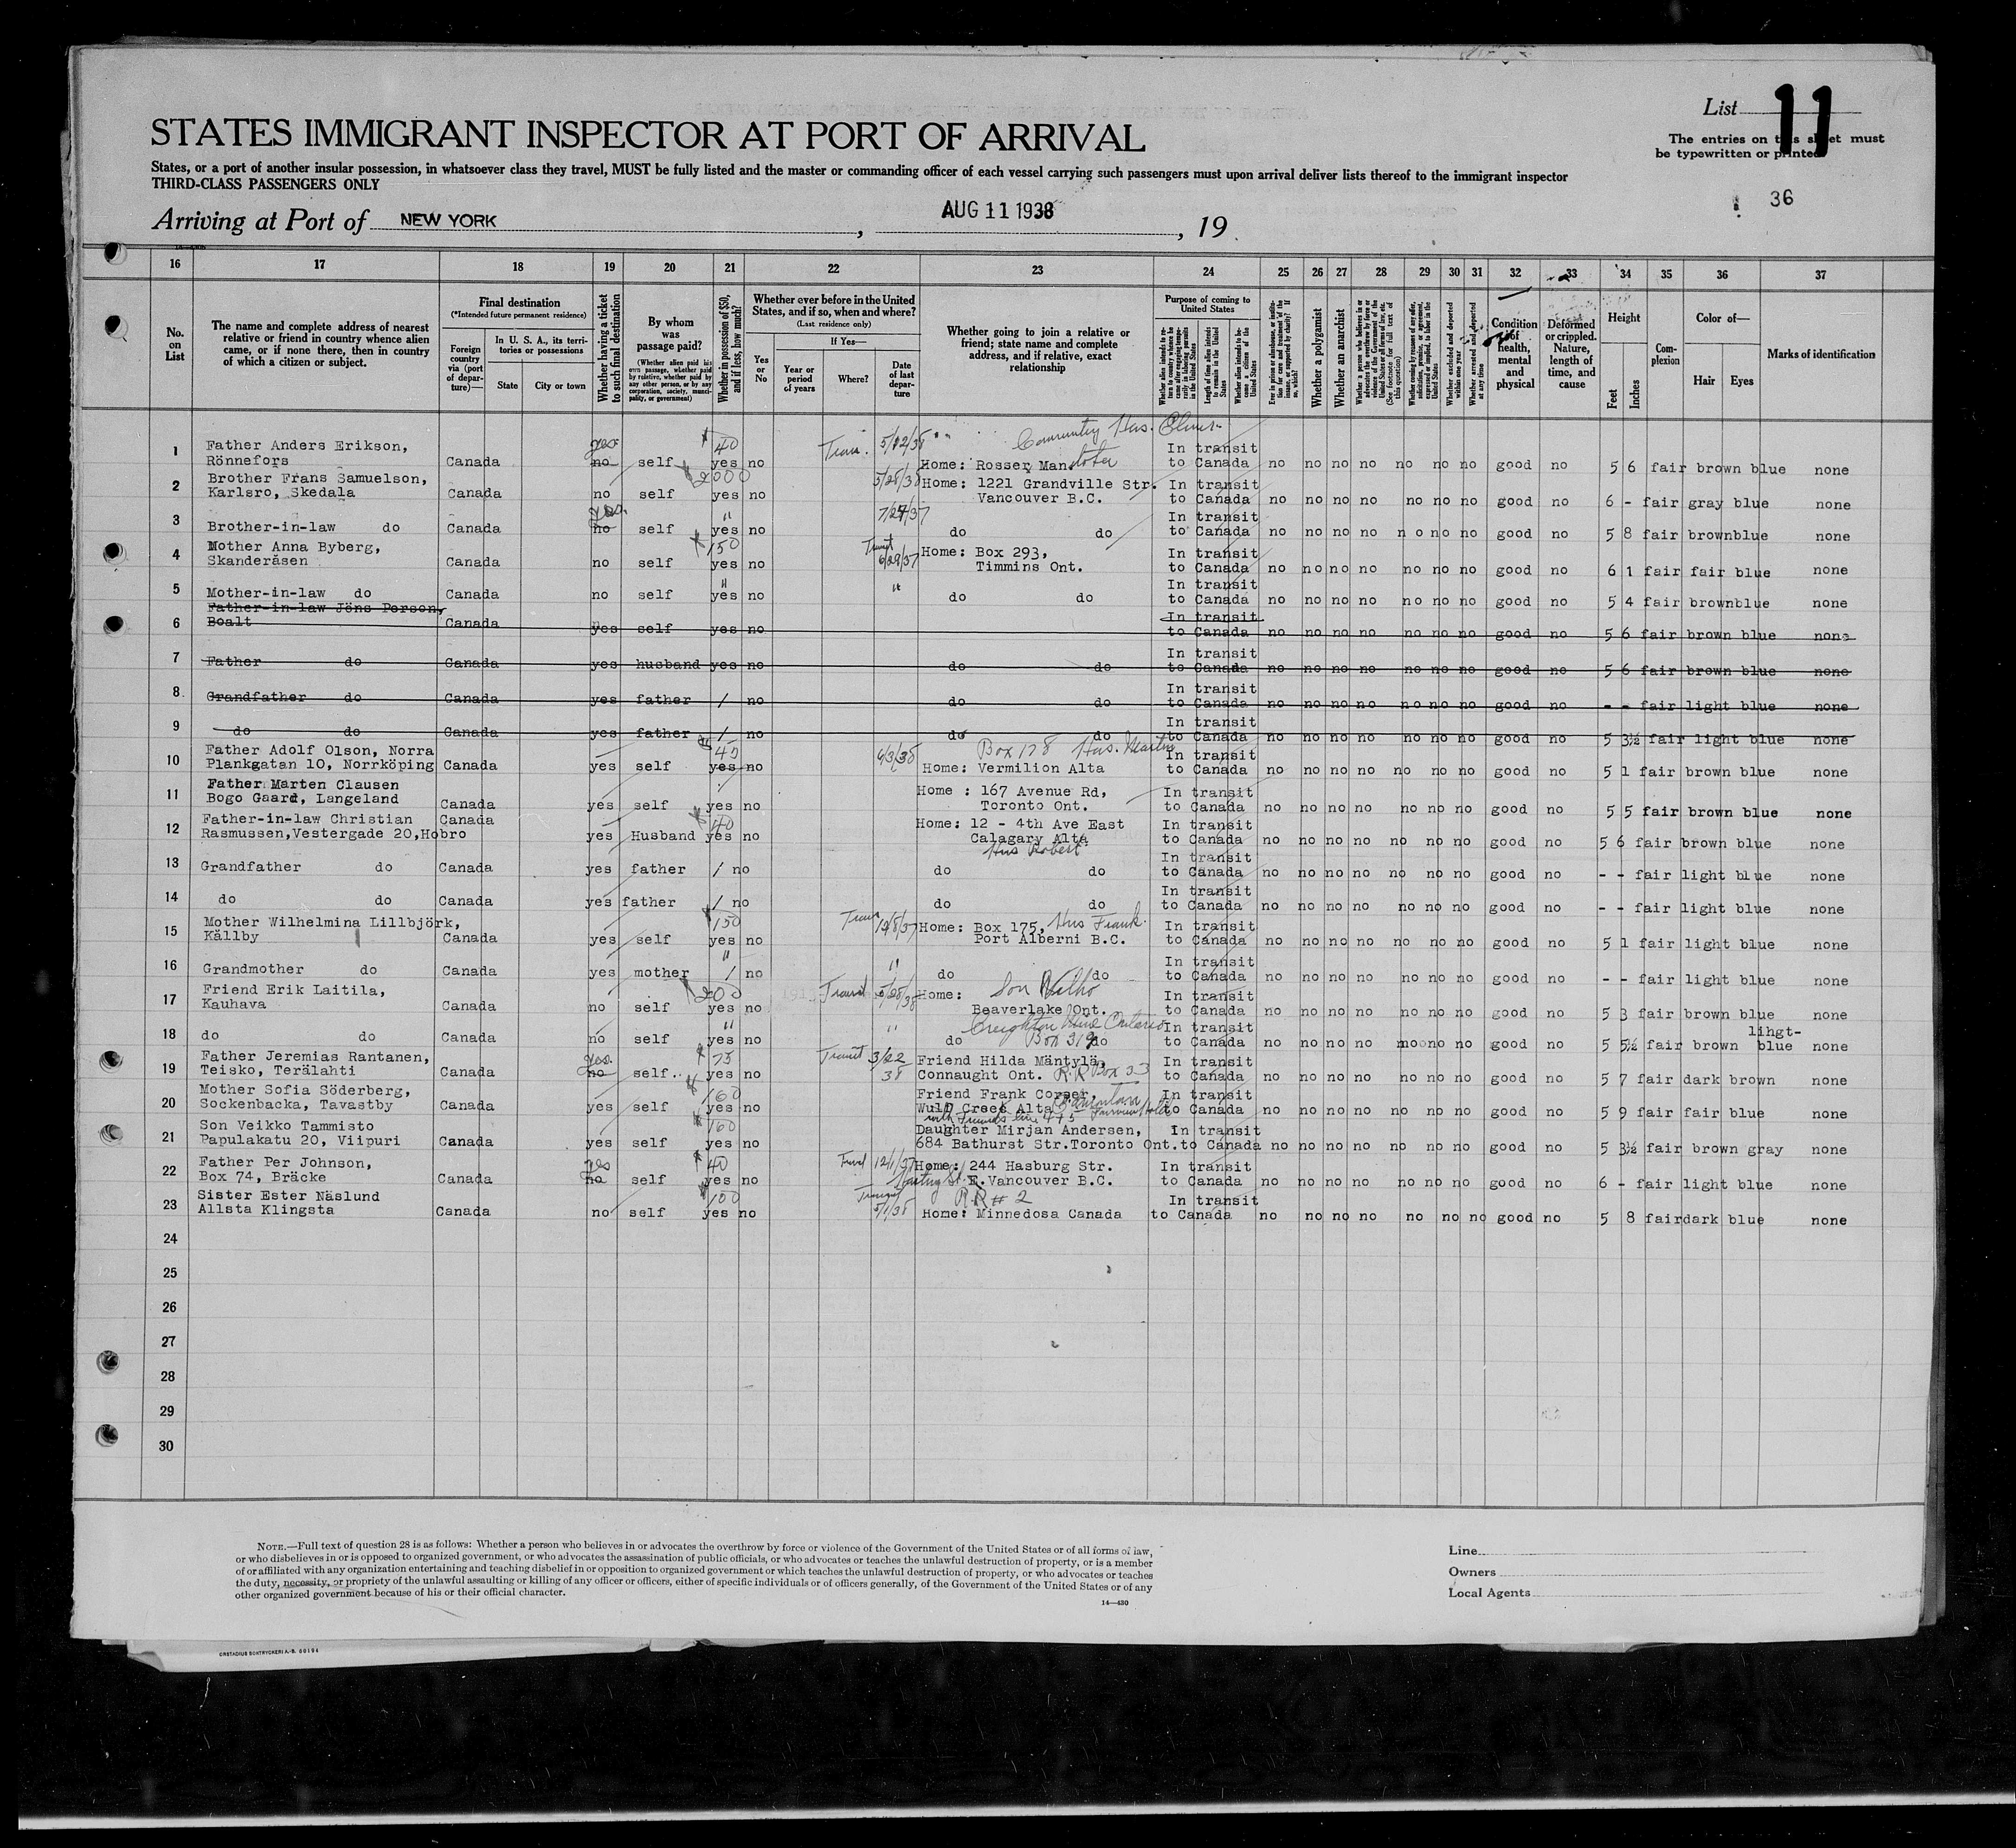 List 11
The entries on this sheet must
be typewritten or printed
36
STATES IMMIGRANT INSPECTOR AT PORT OF ARRIVAL
States, or a port of another insular possession, in whatsoever class they travel, MUST be fully listed and the master or commanding officer of each vessel carrying such passengers must upon arrival deliver lists thereof to the immigrant inspector
THIRD-CLASS PASSENGERS ONLY
Arriving at Port of NEW YORK, AUG 11 1938, 19
16 17 18 19 20 21 22 23 24 25 26 27 28 29 30 31 32 33 34 35 36 37
No. on List
The name and complete address of nearest relative or friend in country whence alien came, or if none there, then in country of which a citizen or subject.
Final destination
(*Intended future permanent residence)
Foreign country via (port of departure)—
In U. S. A., its territories or possessions
State
City or town
Whether having a ticket to such final destination
By whom was passage paid?
(Whether alien paid his own passage, whether paid by relative, whether paid by any other person, or by any corporation, society, municipality, or government)
Whether in possession of $50, and if less, how much?
Whether ever before in the United States, and if so, when and where?
(Last residence only)
Yes or No
If Yes—
Year or period of years
Where?
Date of last departure
Whether going to join a relative or friend; state name and complete address, and if relative, exact relationship
Purpose of coming to United States
Whether a polygamist
Whether an anarchist
Condition of health, mental and physical
Deformed or crippled. Nature, length of time, and cause
Height
Feet
Inches
Complexion
Color of—
Hair
Eyes
Marks of identification
1 Father Anders Erikson, Rönnefors Canada yes no self 40 yes no 5/12/38 Home: Rosser Man In transit to Canada no no no no no no no good no 5 6 fair brown blue none
2 Brother Frans Samuelson, Karlsro, Skedala Canada no self 2000 yes no 5/28/38 Home: 1221 Grandville Str. Vancouver B.C. In transit to Canada no no no no no no no good no 6 - fair gray blue none
3 Brother-in-law do Canada yes no self " yes no 7/27/37 do do In transit to Canada no no no no no no no good no 5 8 fair brownblue none
4 Mother Anna Byberg, Skanderåsen Canada no self 150 yes no Transit 6/29/37 Home: Box 293, Timmins Ont. In transit to Canada no no no no no no no good no 6 1 fair fair blue none
5 Mother-in-law do Canada no self " yes no " do do In transit to Canada no no no no no no no good no 5 4 fair brownblue none
6 Father-in-law Jöns Person, Boalt Canada yes self yes no In transit to Canada no no no no no no no good no 5 6 fair brown blue none
7 Father do Canada yes husband yes no do do In transit to Canada no no no no no no no good no 5 6 fair brown blue none
8 Grandfather do Canada yes father / no do do In transit to Canada no no no no no no no good no - - fair light blue none
9 do do Canada yes father / no do do In transit to Canada no no no no no no no good no 5 3½ fair light blue none
10 Father Adolf Olson, Norra Plankgatan 10, Norrköping Canada yes self 45 yes no 6/3/38 Box 178 Hus. Martin Home: Vermilion Alta In transit to Canada no no no no no no no good no 5 1 fair brown blue none
11 Father Marten Clausen Bogo Gaard, Langeland Canada yes self yes no Home : 167 Avenue Rd, Toronto Ont. In transit to Canada no no no no no no no good no 5 5 fair brown blue none
12 Father-in-law Christian Rasmussen,Vestergade 20,Hobro Canada yes Husband 40 yes no Home: 12 - 4th Ave East Calagary Alta. Hus Robert In transit to Canada no no no no no no no good no 5 6 fair brown blue none
13 Grandfather do Canada yes father / no do do In transit to Canada no no no no no no no good no - - fair light blue none
14 do do Canada yes father / no do do In transit to Canada no no no no no no no good no - - fair light blue none
15 Mother Wilhelmina Lillbjörk, Källby Canada yes self 150 yes no Home: Box 175, Hus Frank. Port Alberni B.C. In transit to Canada no no no no no no no good no 5 1 fair light blue none
16 Grandmother do Canada yes mother " / no " do do In transit to Canada no no no no no no no good no - - fair light blue none
17 Friend Erik Laitila, Kauhava Canada no self 200 yes no Transit 5/28/38 Home: Son Vilho Beaverlake Ont. In transit to Canada no no no no no no no good no 5 3 fair brown blue none
18 do do Canada no self " yes no " Creighton Mine Ontario do Box 319 do In transit to Canada no no no no no no no good no 5 5½ fair brown lihgt-blue none
19 Father Jeremias Rantanen, Teisko, Terälahti Canada yes no self.. 75 yes no Transit 3/22 38 Friend Hilda Mäntylä, Connaught Ont. R.R Box 33 In transit to Canada no no no no no no no good no 5 7 fair dark brown none
20 Mother Sofia Söderberg, Sockenbacka, Tavastby Canada yes self 160 yes no Friend Frank Corser, Wulf Creek Alta In transit to Canada no no no no no no no good no 5 9 fair fair blue none
21 Son Veikko Tammisto Papulakatu 20, Viipuri Canada yes self 160 yes no Daughter Mirjan Andersen, 684 Bathurst Str.Toronto Ont. In transit to Canada no no no no no no no good no 5 3½ fair brown gray none
22 Father Per Johnson, Box 74, Bräcke Canada yes no self 40 yes no 12/1/37 Home: 244 Hasburg Str. E.Vancouver B.C. In transit to Canada no no no no no no no good no 6 - fair light blue none
23 Sister Ester Näslund Allsta Klingsta Canada no self 100 yes no Transit 5/1/38 RR # 2 Home: Minnedosa Canada In transit to Canada no no no no no no no good no 5 8 fair dark blue none
24
25
26
27
28
29
30
NOTE.—Full text of question 28 is as follows: Whether a person who believes in or advocates the overthrow by force or violence of the Government of the United States or of all forms of law,
or who disbelieves in or is opposed to organized government, or who advocates the assassination of public officials, or who advocates or teaches the unlawful destruction of property, or is a member
of or affiliated with any organization entertaining and teaching disbelief in or opposition to organized government or which teaches the unlawful destruction of property, or who advocates or teaches
the duty, necessity, or propriety of the unlawful assaulting or killing of any officer or officers, either of specific individuals or of officers generally, of the Government of the United States or of any
other organized government because of his or their official character.
14—430
Line
Owners
Local Agents